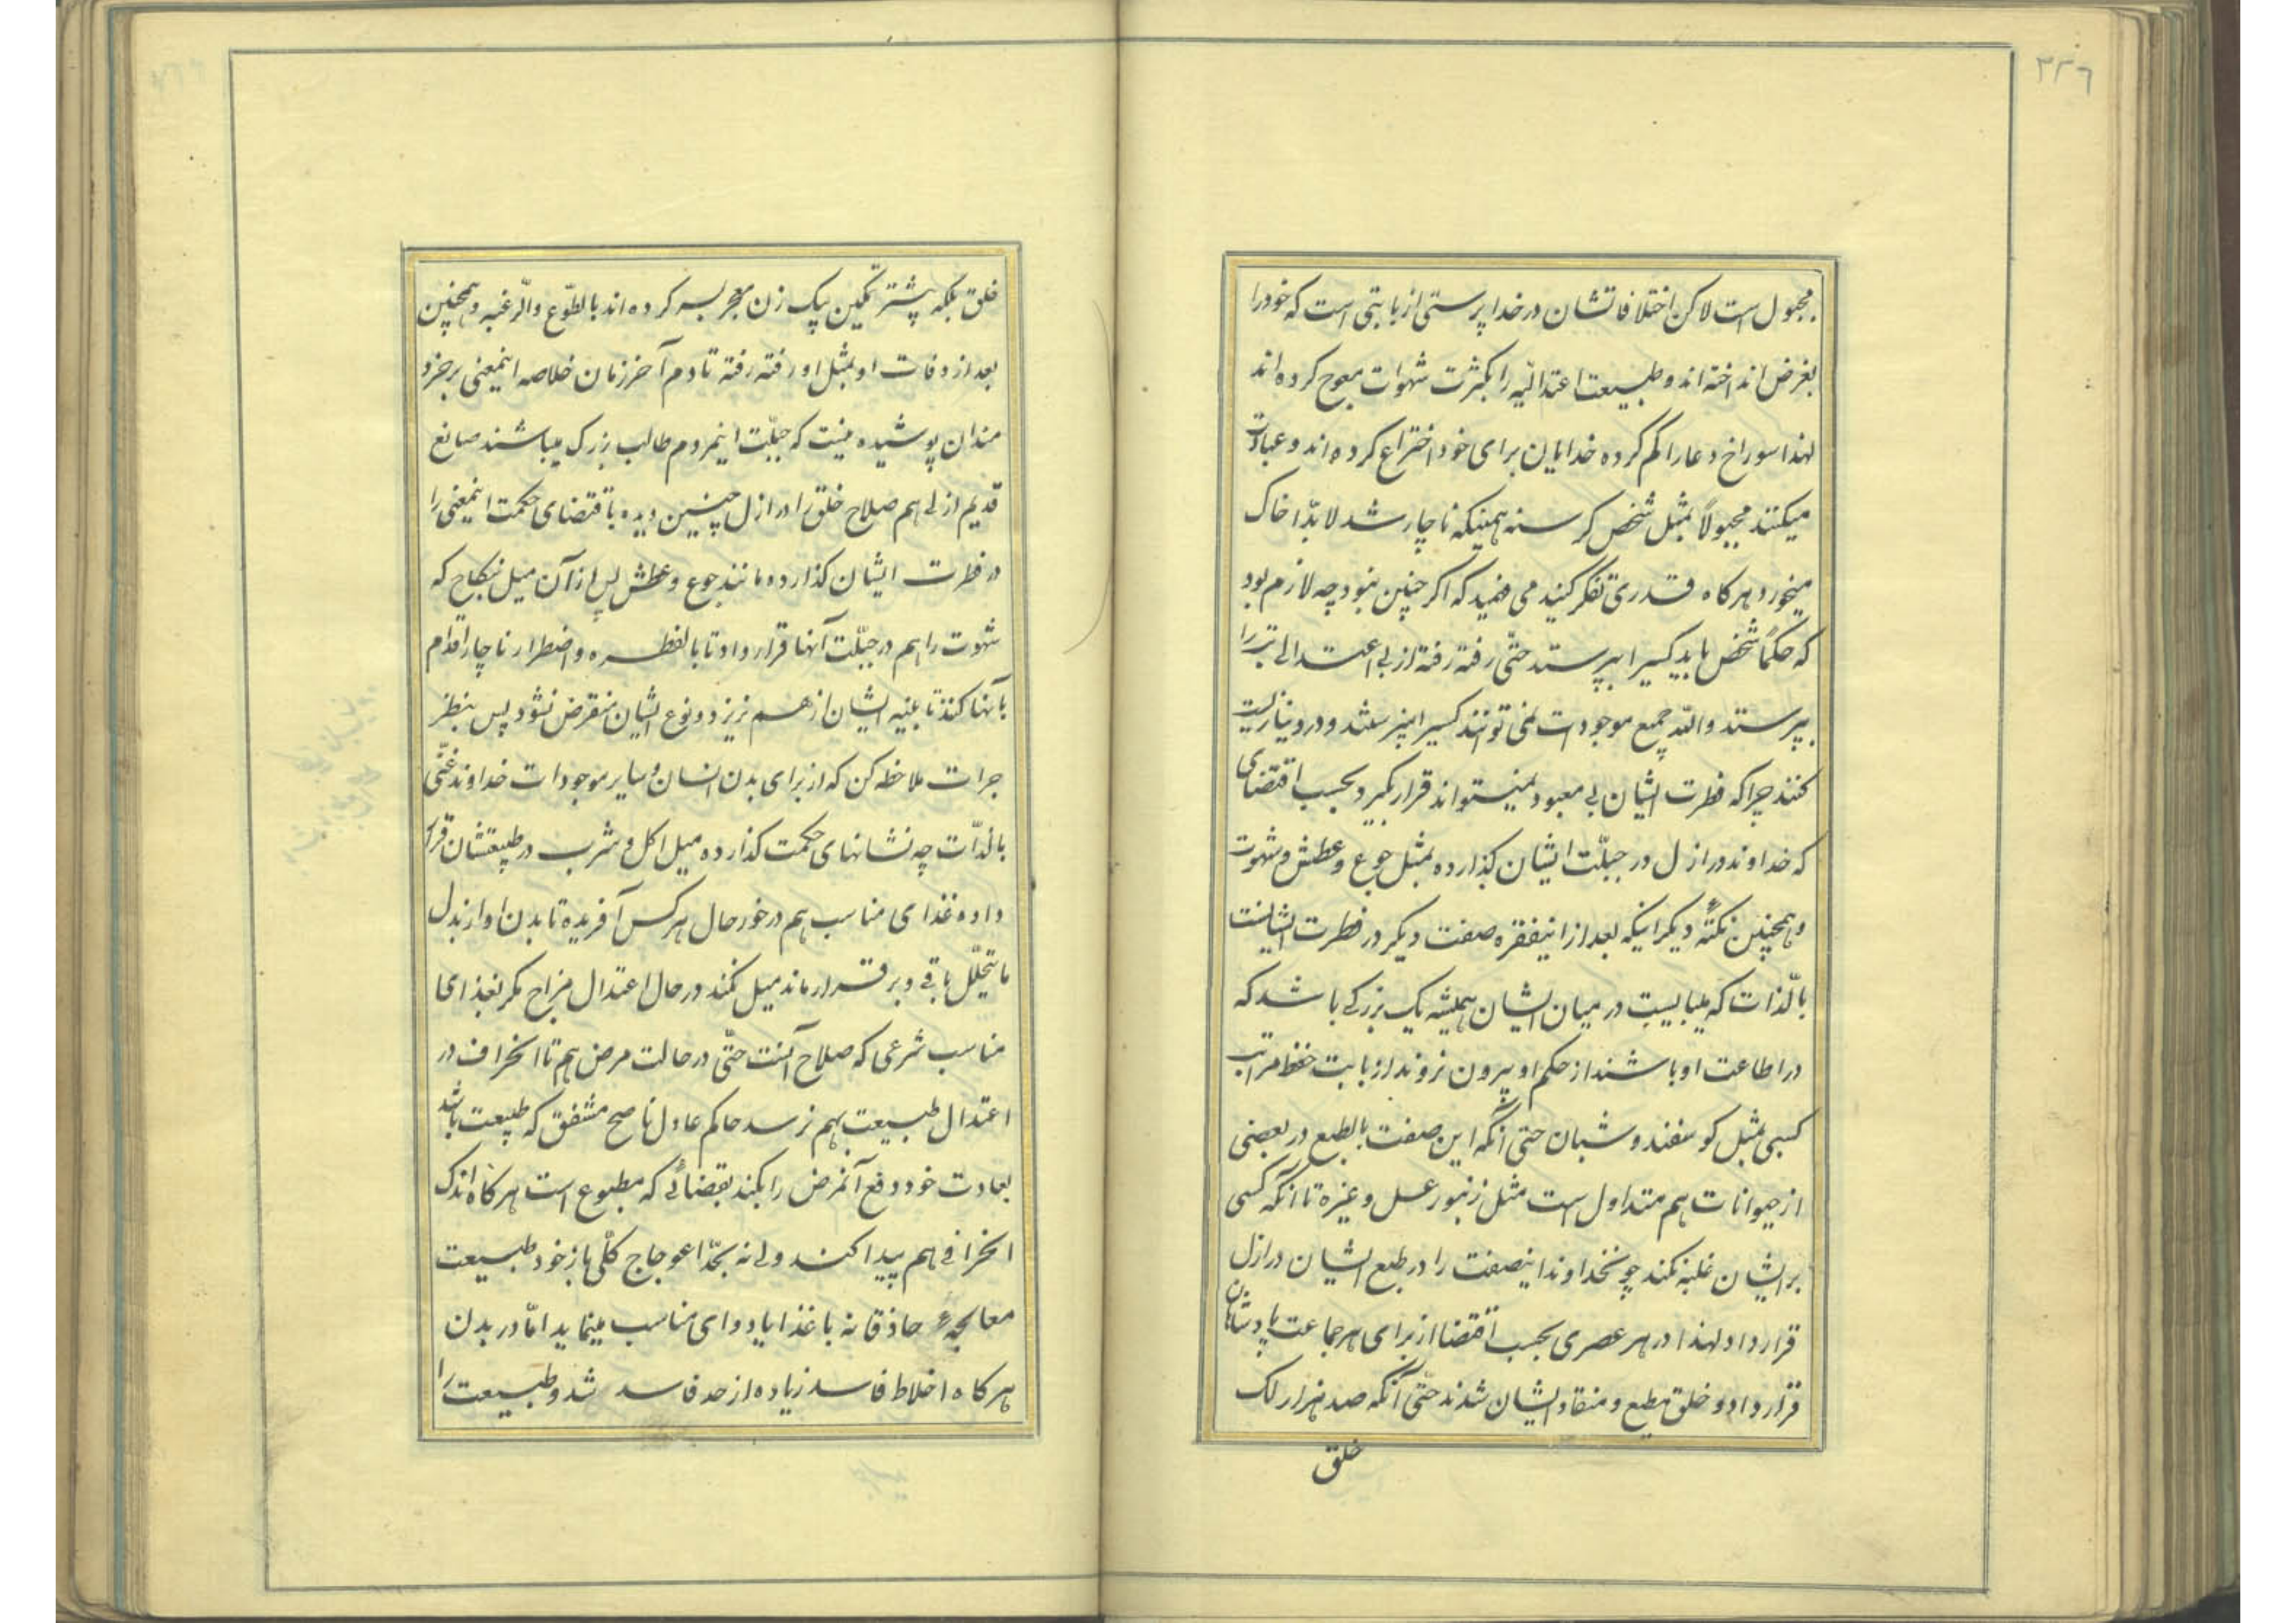 ۲۲۶
مجبول است لاکن اختلافاتشان در خدا پرستی از بابتی است که خود را
بغرض انداخته‌اند و طبیعت اعتدالیّه را بکثرت شهوات معوج کرده‌اند
لهذا سوراخ دعا را کم کرده خدایان برای خود اختراع کرده‌اند و عبادت
میکنند مجبولاً بمثل شخص کرسنه همینکه ناچار شد لابدّا خاک
میخورد هرکاه قدری تفکر کنید می فهمید که اکر چنین نبود چه لازم بود
که حکماً شخص باید کسیرا بپرستد حتّی رفته رفته از بی اعتدالی بتر را
بپرستد والّا جمیع موجودات نمی توانند کسیرا نپرستند و در دنیا زیست
کنند چرا که فطرت ایشان بی معبود نمیتواند قرار بگیرد بحسب اقتضای
که خداوند در ازل در جبلّت ایشان کذارده بمثل جوع و عطش و شهوت
و همچنین نکتهٔ دیکر اینکه بعد از اینفقره صفت دیکر در فطرت ایشانست
بالّذات که میبایست در میان ایشان همیشه یک بزرکی باشد که
در اطاعت او باشند از حکم او بیرون نروند از بابت حفظ مراتب
کسبی بمثل کوسفند و شبان حتی آنکه این صفت بالطبع در بعضی
از حیوانات هم متداول است مثل زنبور عسل و غیره تا آنکه کسی
بر ایشان غلبه نکند چونخداوند اینصفت را در طبع ایشان در ازل
قرار داد لهذا در هر عصری بحسب اقتضا از برای هر جماعت پادشاهان
قرار داد و خلق مطیع و منقاد ایشان شدند حتّی آنکه صد هزار لک
خلق
خلق بلکه پشتر تمکین یک زن معجر بسر کرده‌اند بالطّوع والّرغبه و همچنین
بعد از وفات او بمثل او رفته رفته تا دم آخر زمان خلاصه اینمعنی بر خرد
مندان پوشیده نیست که جبلّت اینمردم طالب بزرک میباشند صانع
قدیم ازلی هم صلاح خلق را در ازل چنین دیده باقتضای حکمت اینمعنی را
در فطرت ایشان کذارده مانند جوع و عطش پس از آن میل بنکاح که
شهوت را هم در جبلّت آنها قرار داد تا بالفطره و اضطرار ناچار اقدام
بآنها کنند تا بنیه ایشان از هم نریزد و نوع ایشان منقرض نشود پس بنظر
جرات ملاحظه کن که از برای بدن انسان و سایر موجودات خداوند غنّی
بالذّات چه نشانهای حکمت کذارده میل اکل و شرب در طبیعتشان قرار
داده غذای مناسب هم در خور حال هر کس آفریده تا بدن او از بدل
ما یتحلّل باقی و برقرار ماند میل نکند در حال اعتدال مزاج مکر بغذای
مناسب شرعی که صلاح آنست حتّی در حالت مرض هم تا انحراف در
اعتدال طبیعت بهم نرسد حاکم عادل ناصح مشفق که طبیعت باشد
بعادت خود دفع آنمرض را بکند بقضائی که مطبوع است هرکاه اندک
انحرافی هم پیدا کند ولی نه بحّد اعوجاج کلّی باز خود طبیعت
معالجهٔ حاذقانه با غذا یا دوای مناسب مینماید امّا در بدن
هرکاه اخلاط فاسد زیاده از حد فاسد شد و طبیعت را